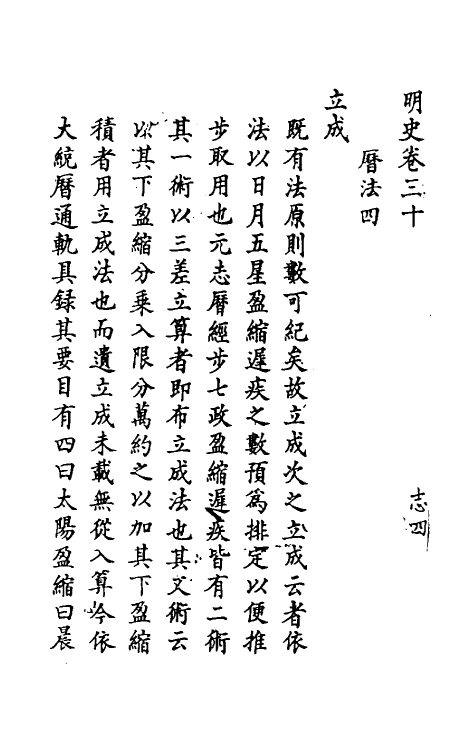 明史卷三十
志四
曆法四
立成
既有法原則數可紀矣故立成次之立成云者依
法以日月五星盈縮遲疾之數預為排定以便推
步取用也元志曆經步七政盈縮遲疾皆有二術
其一術以三差立算者即布立成法也其又術云
以其下盈縮分乗入限分萬約之以加其下盈縮
積者用立成法也而遺立成未載無從入算今依
大統曆通軌具録其要目有四曰太陽盈縮曰晨